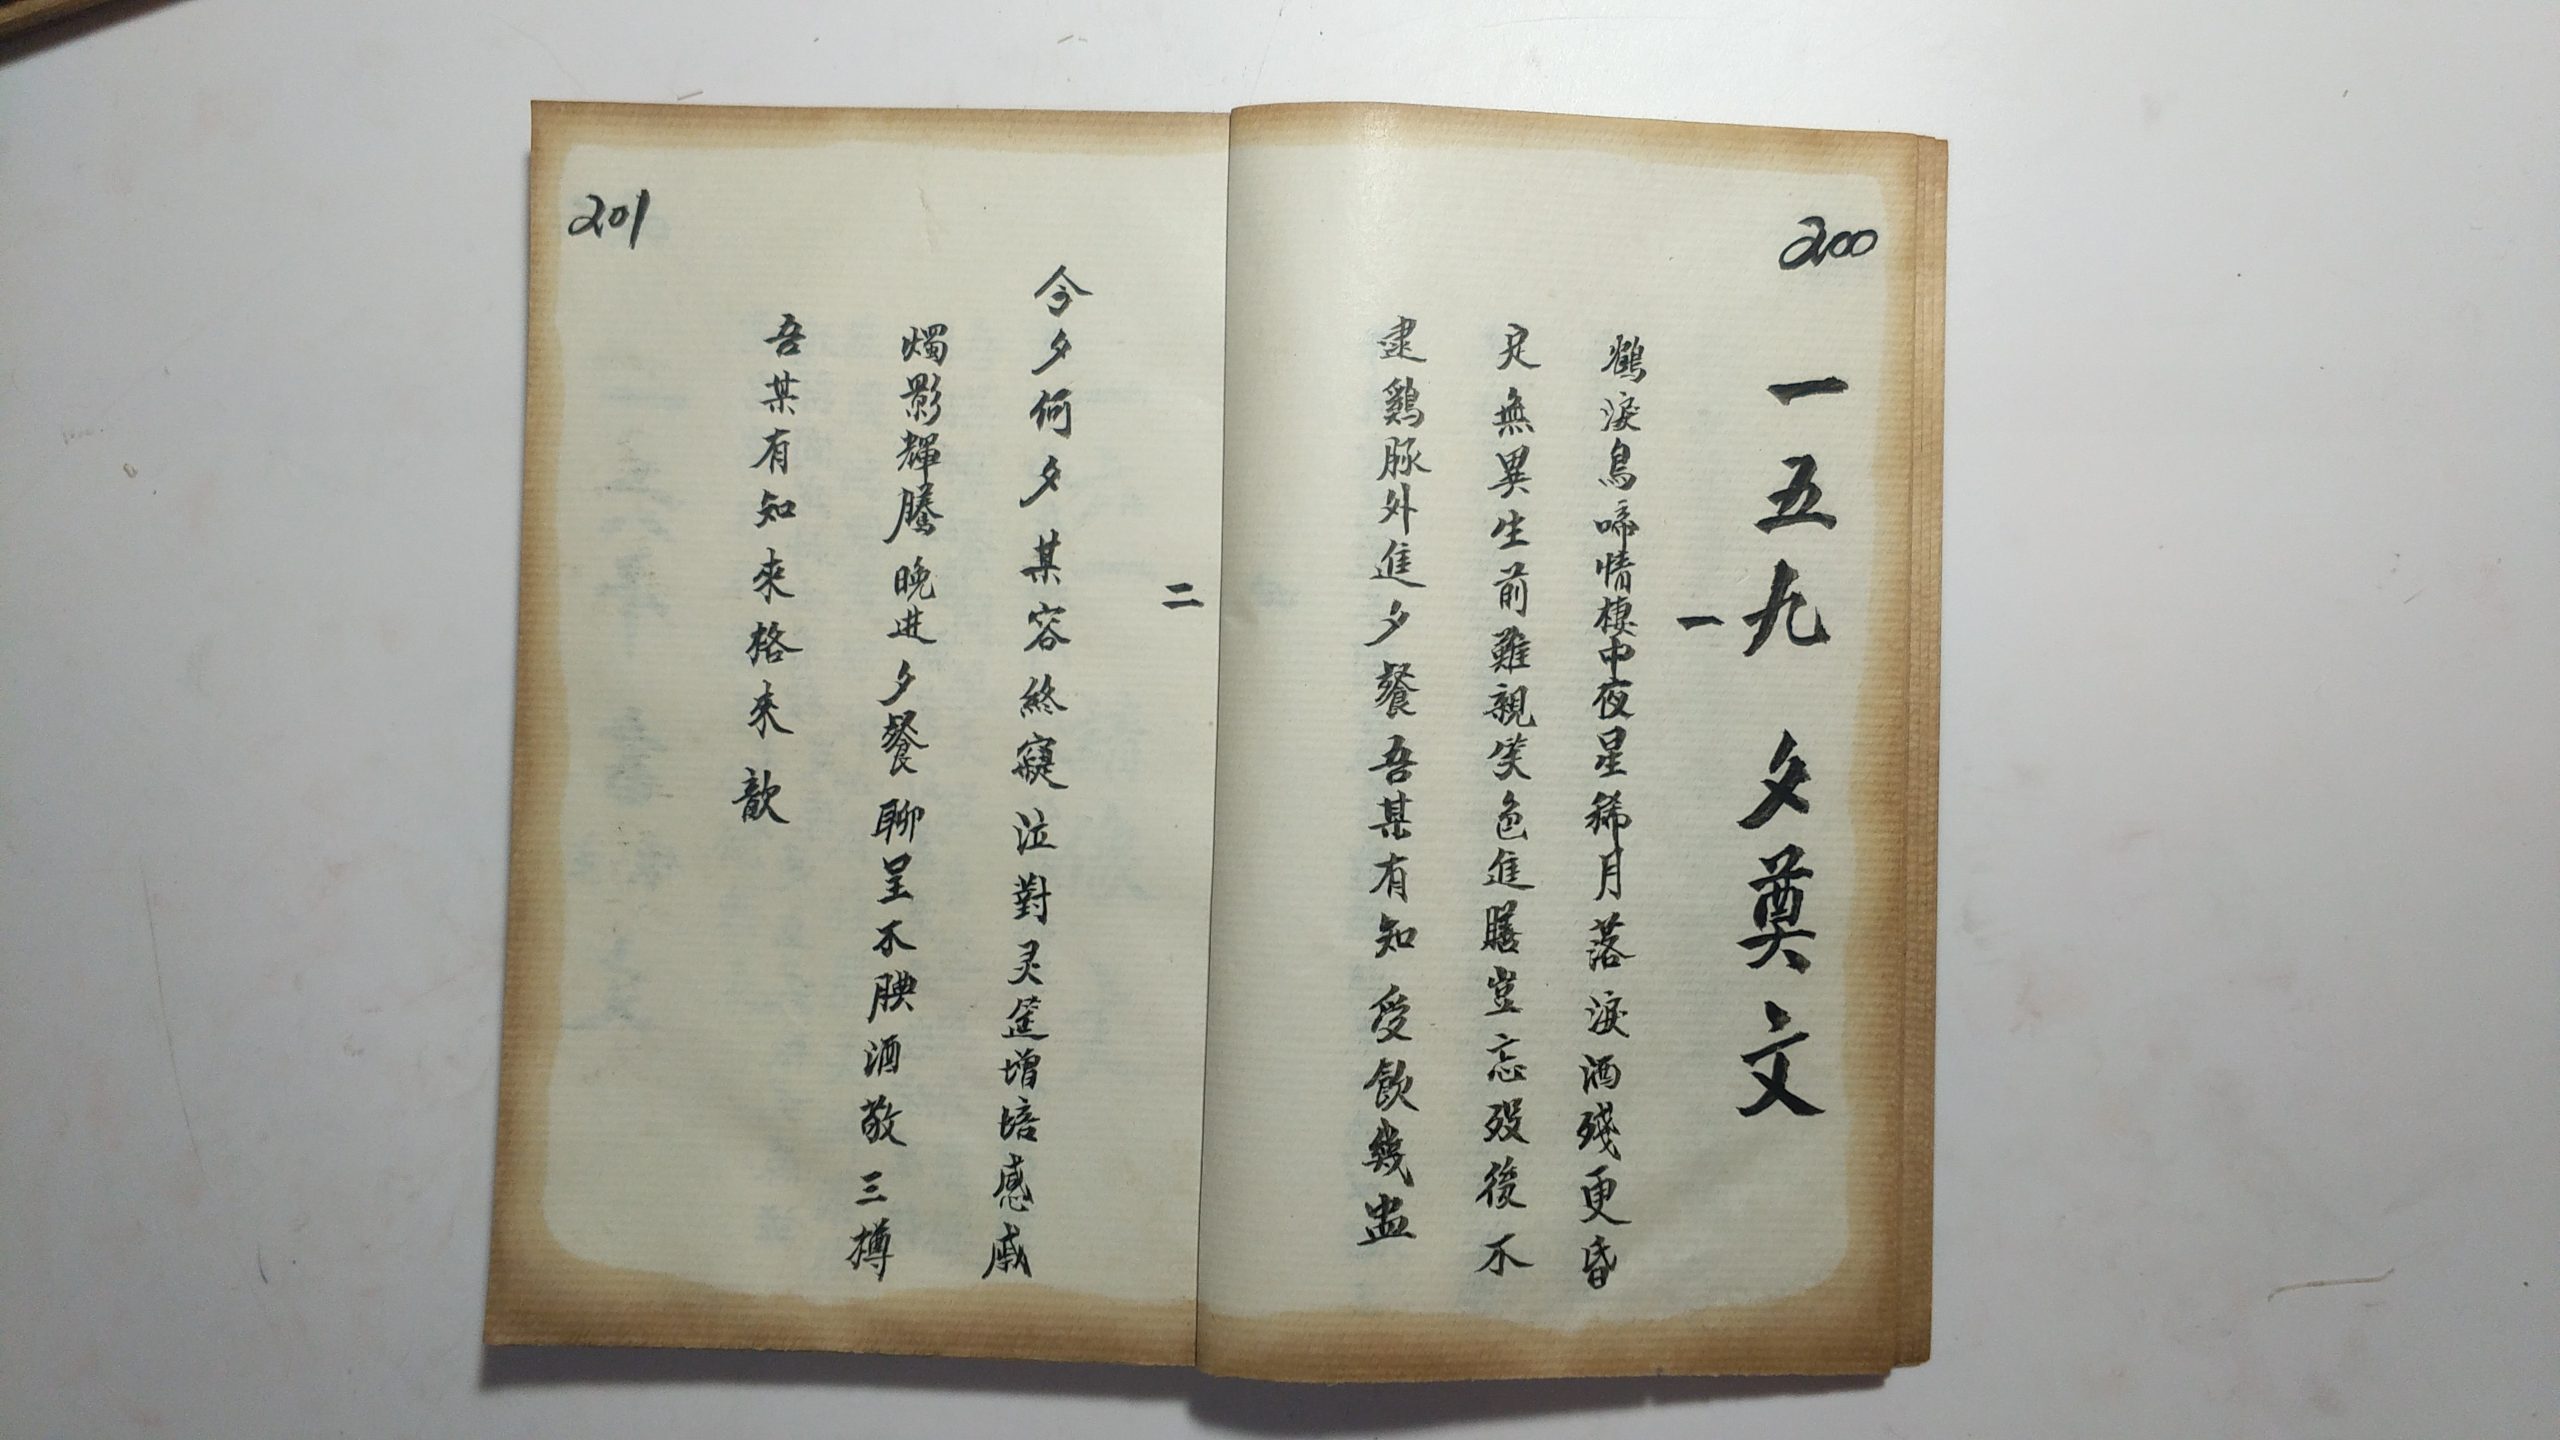 200
一五九 夕奠文
一
鶴淚鳥啼情棲中夜星稀月落淚酒殘更昏
定無異生前難親笑色進膳豈忘歿後不
逮鷄豚外進夕餐吾某有知受飲幾盅
二
今夕何夕某容終窺泣對灵筵增培感戚
燭影輝騰晚进夕餐聊呈不腆酒敬三樽
吾某有知來格来歆
201